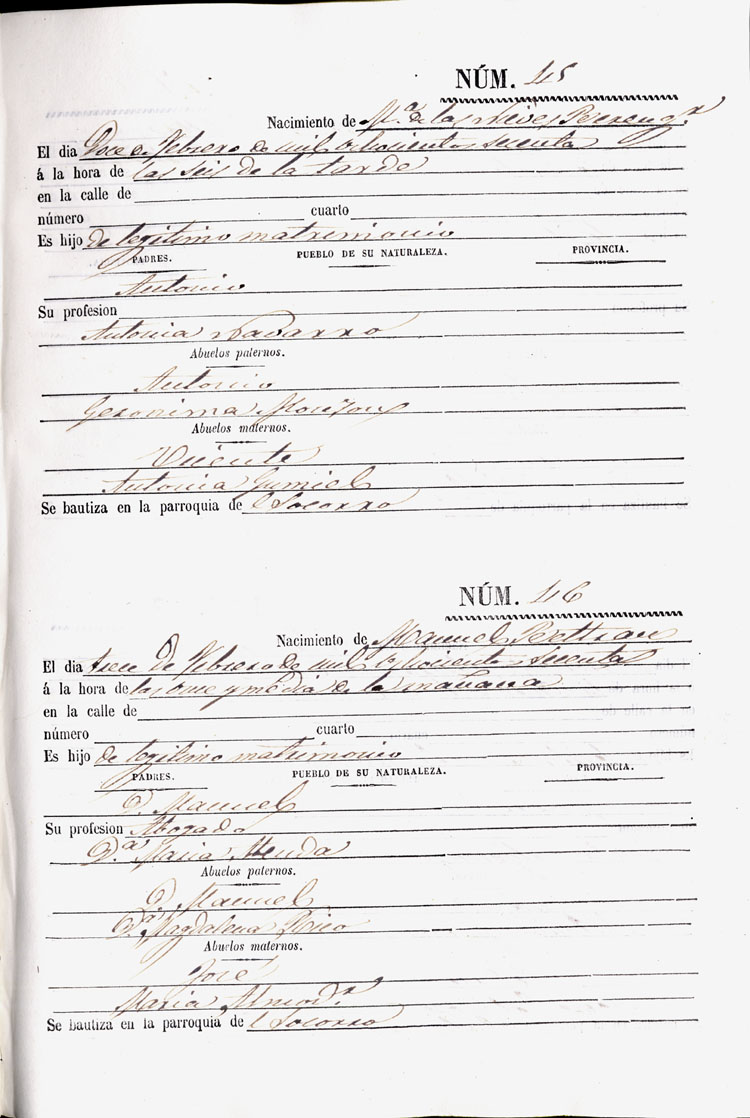 NÚM. 45
Nacimiento de M.ª de las Nieves Bereng.r
El dia Doce de Febrero de mil ochocientos secenta
á la hora de las seis de la tarde
en la calle de
número cuarto
Es hijo de legitimo matrimonio
PADRES. PUEBLO DE SU NATURALEZA. PROVINCIA.
Antonio
Su profesion
Antonia Navarro
Abuelos paternos.
Antonio
Geronima Monzon
Abuelos maternos.
Vicente
Antonia Gumiel
Se bautiza en la parroquia de l Socorro
NÚM. 46
Nacimiento de Manuel Beltran
El dia trece de Febrero de mil ochocientos secenta
á la hora de las once y media de la mañana
en la calle de
número cuarto
Es hijo de legitimo matrimonio
PADRES. PUEBLO DE SU NATURALEZA. PROVINCIA.
D. Manuel
Su profesion Abogado
D.ª Maria
Abuelos paternos.
D. Manuel
D.ª Magdalena Rico
Abuelos maternos.
José
Maria
Se bautiza en la parroquia de l Socorro